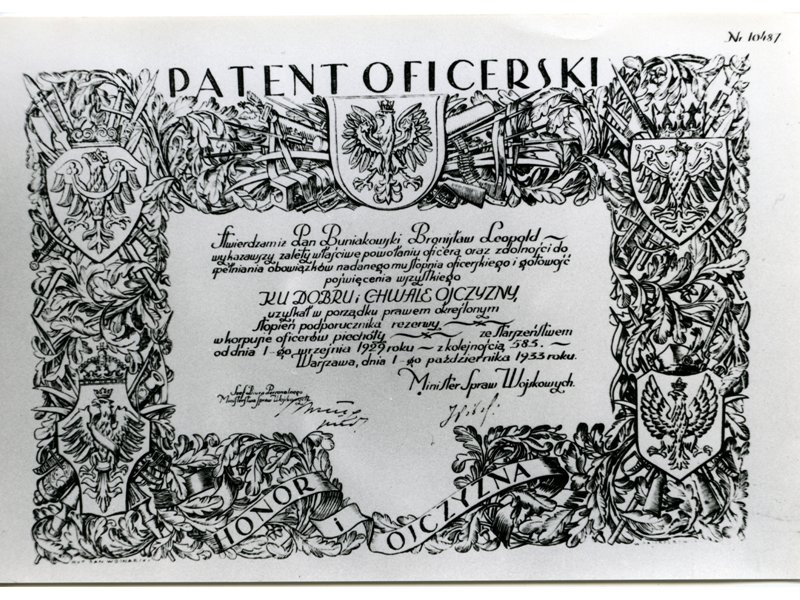 Nr 10487
PATENT OFICERSKI
Stwierdzam iż Pan Buniakowski Bronisław Leopold ~
wykazawszy zalety właściwe powołaniu oficera oraz zdolności do
pełniania obowiązków nadanego mu stopnia oficerskiego i gotowość
poświęcenia wszystkiego
KU DOBRU i CHWALE OJCZYZNY,
uzyskał w porządku prawem określonym
stopień podporucznika rezerwy
w korpusie oficerów piechoty ze starszeństwem
od dnia 1-go września 1929 roku ~ z kolejnością 583. ~
Warszawa, dnia 1-go października 1933 roku.
Szef Biura Personalnego
Ministerstwa Spraw Wojskowych
Minister Spraw Wojskowych.
HONOR i OJCZYZNA